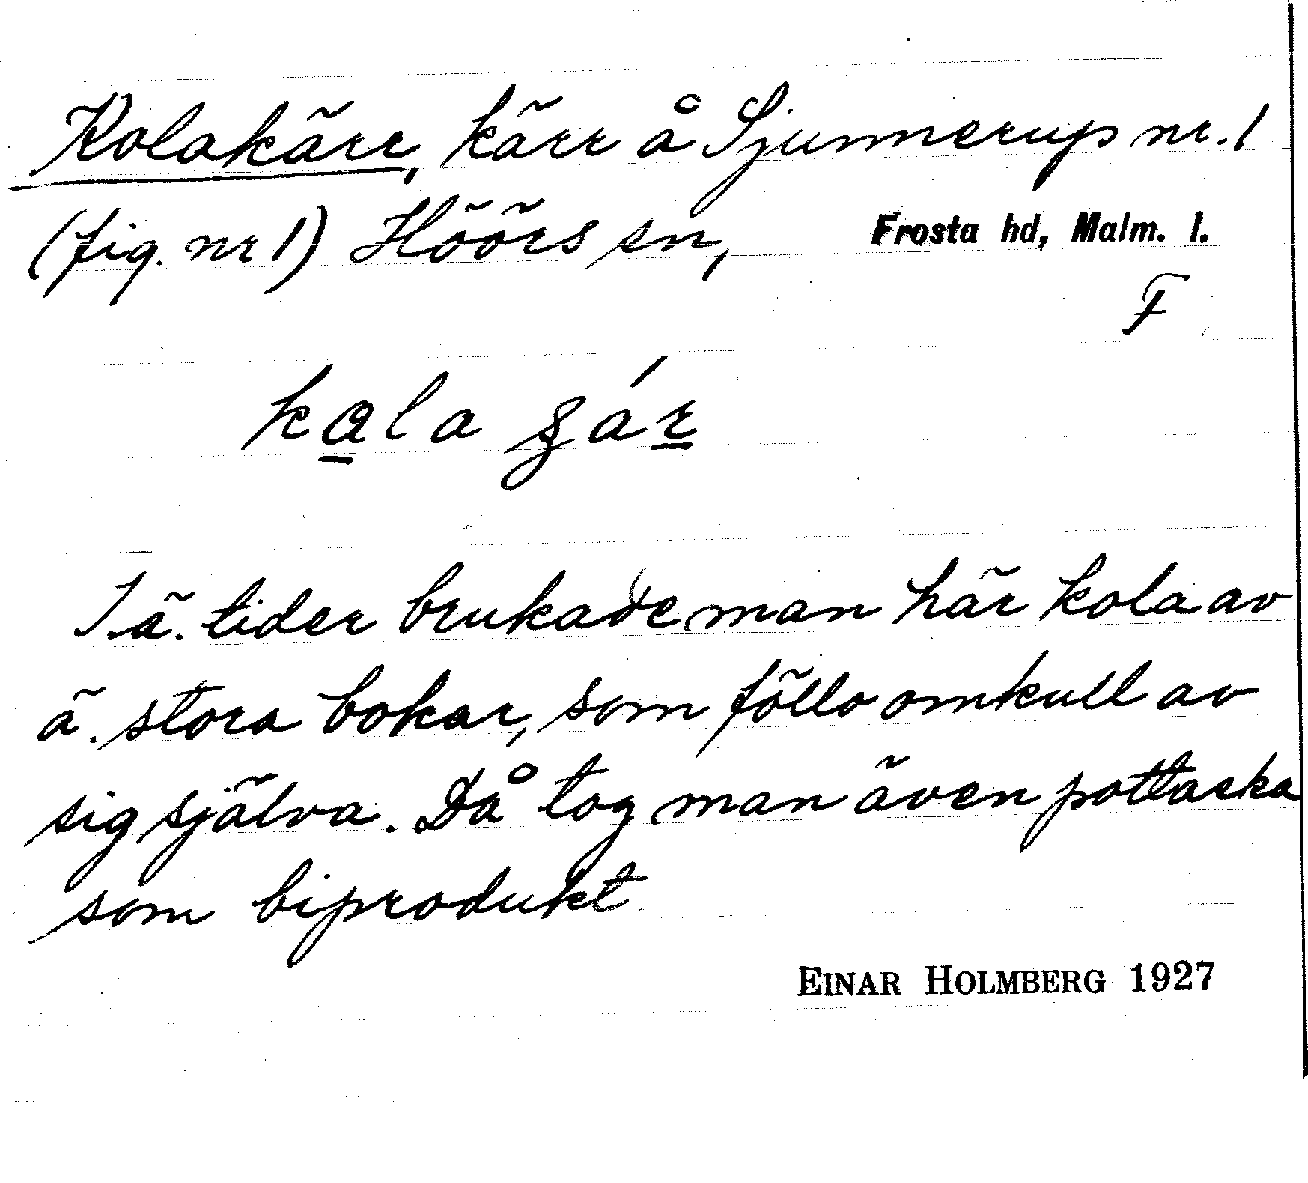 Kolakärr, kärr å Sjunnerup nr. 1
(fig. nr 1) Höörs sn, Frosta hd, Malm. l.
F
I ä. tider brukade man här kola av
ä. stora bokar, som föllo omkull av
sig själva. Då tog man även pottaska
som biprodukt
EINAR HOLMBERG 1927